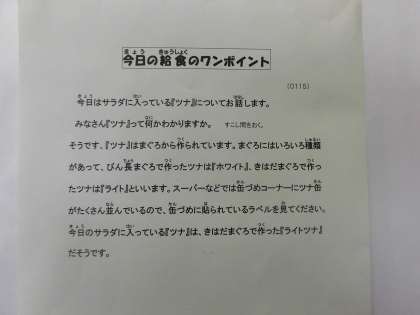 今日の給食のワンポイント
(0115)
今日はサラダに入っている『ツナ』についてお話します。
みなさん『ツナ』って何かわかりますか。 すこし間をおく。
そうです、『ツナ』はまぐろから作られています。まぐろにはいろいろ種類
があって、びん長まぐろで作ったツナは『ホワイト』、きはだまぐろで作っ
たツナは『ライト』といいます。スーパーなどでは缶づめコーナーにツナ缶
がたくさん並んでいるので、缶づめに貼られているラベルを見てください。
今日のサラダに入っている『ツナ』は、きはだまぐろで作った『ライトツナ』
だそうです。